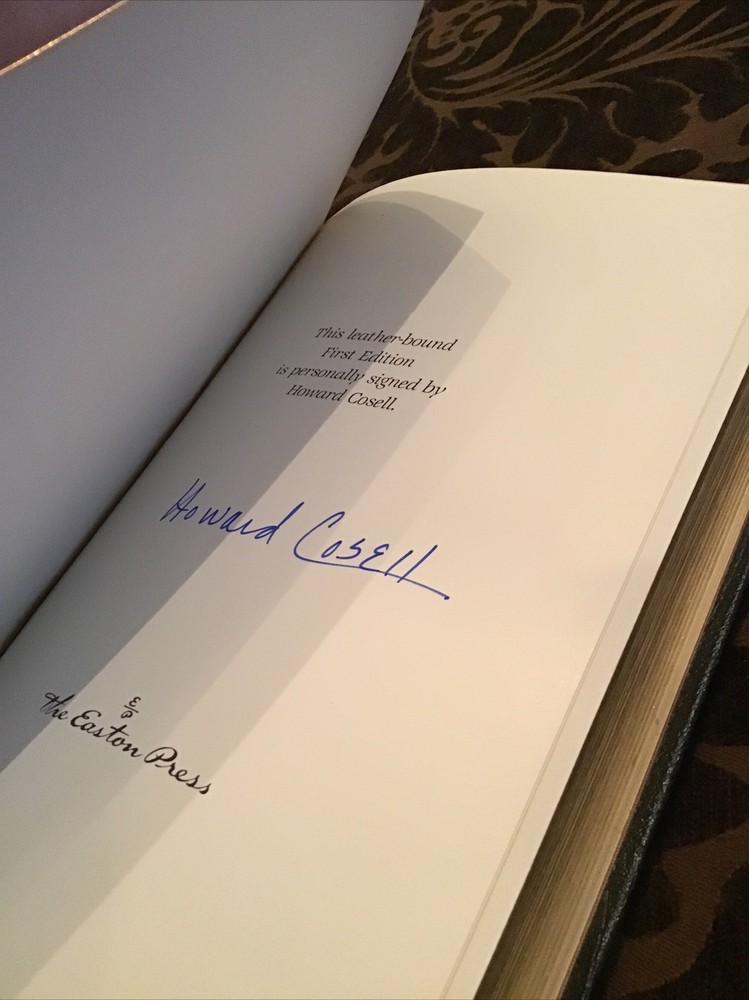 This leather-bound
First Edition
is personally signed by
Howard Cosell.
Howard Cosell
EP
the Easton Press